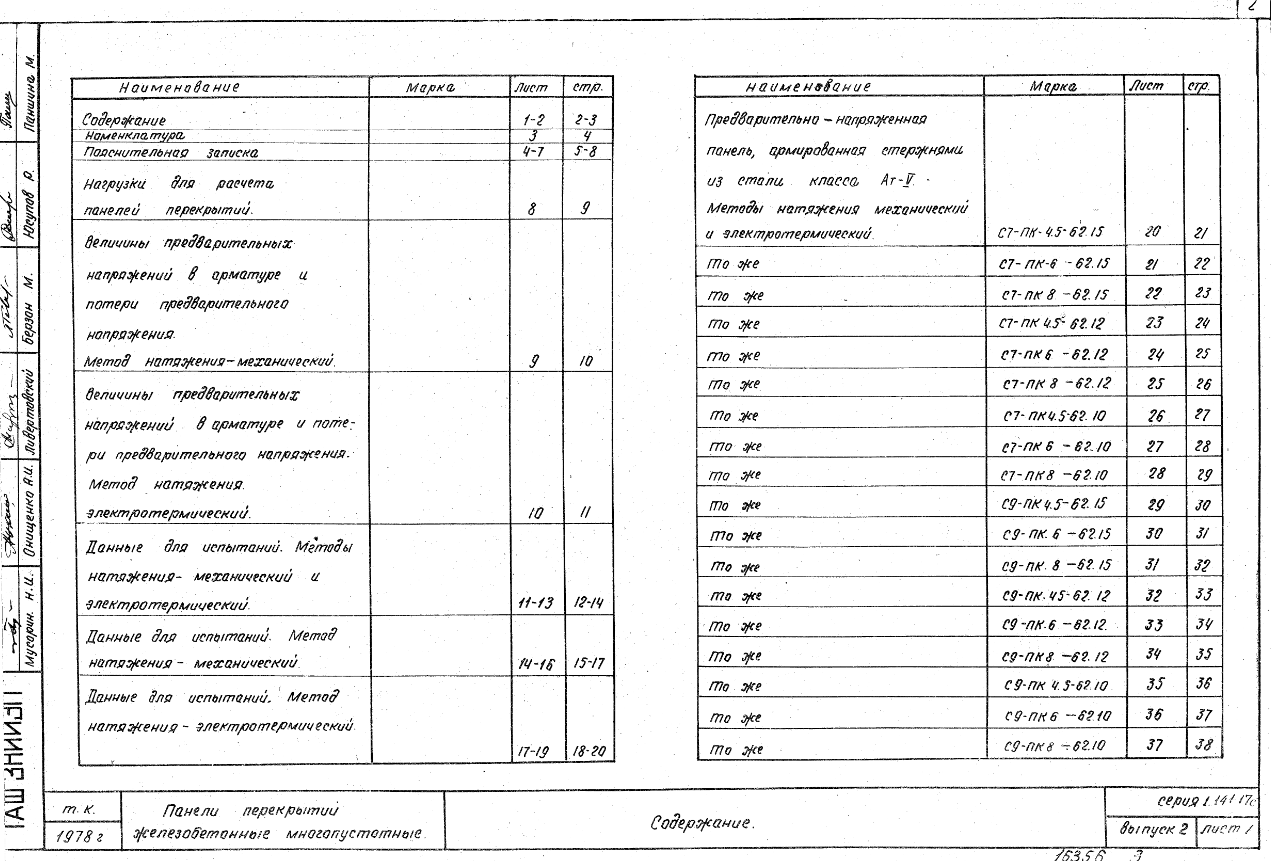 2
Наименование Марка Лист стр.
Содержание 1-2 2-3
Номенклатура 3 4
Пояснительная записка 4-7 5-8
Нагрузки для расчета
панелей перекрытий. 8 9
Величины предварительных
напряжений в арматуре и
потери предварительного
напряжения.
Метод натяжения-механический. 9 10
Величины предварительных
напряжений в арматуре и поте-
ри предварительного напряжения.
Метод натяжения
электротермический. 10 11
Данные для испытаний. Методы
натяжения- механический и
электротермический. 11-13 12-14
Данные для испытаний. Метод
натяжения- механический. 14-16 15-17
Данные для испытаний. Метод
натяжения- электротермический.
17-19 18-20
Наименование Марка Лист стр.
Предварительно-напряженная
панель, армированная стержнями
из стали класса Ат-V.
Методы натяжения механический
и электротермический. С7-ПК-4.5-62.15 20 21
То же С7-ПК-6-62.15 21 22
То же С7-ПК 8-62.15 22 23
То же С7-ПК 4.5-62.12 23 24
То же С7-ПК 6-62.12 24 25
То же С7-ПК 8-62.12 25 26
То же С7-ПК4.5-62.10 26 27
То же С7-ПК 6-62.10 27 28
То же С7-ПК 8-62.10 28 29
То же С9-ПК 4.5-62.15 29 30
То же С9-ПК. 6-62.15 30 31
То же С9-ПК. 8-62.15 31 32
То же С9-ПК.45-62.12 32 33
То же С9-ПК.6-62.12. 33 34
То же С9-ПК8-62.12 34 35
То же С9-ПК 4.5-62.10 35 36
То же С9-ПК6-6210 36 37
То же С9-ПК8-62.10 37 38
Паншина М.
Юсупов Р.
Берзан М.
Ливертовский
Онищенко А.И.
Мусорин. Н.И.
т. к.
1978 г
Панели перекрытий
железобетонные многопустотные.
Содержание.
серия 1.141
выпуск 2 лист 1
15356 3